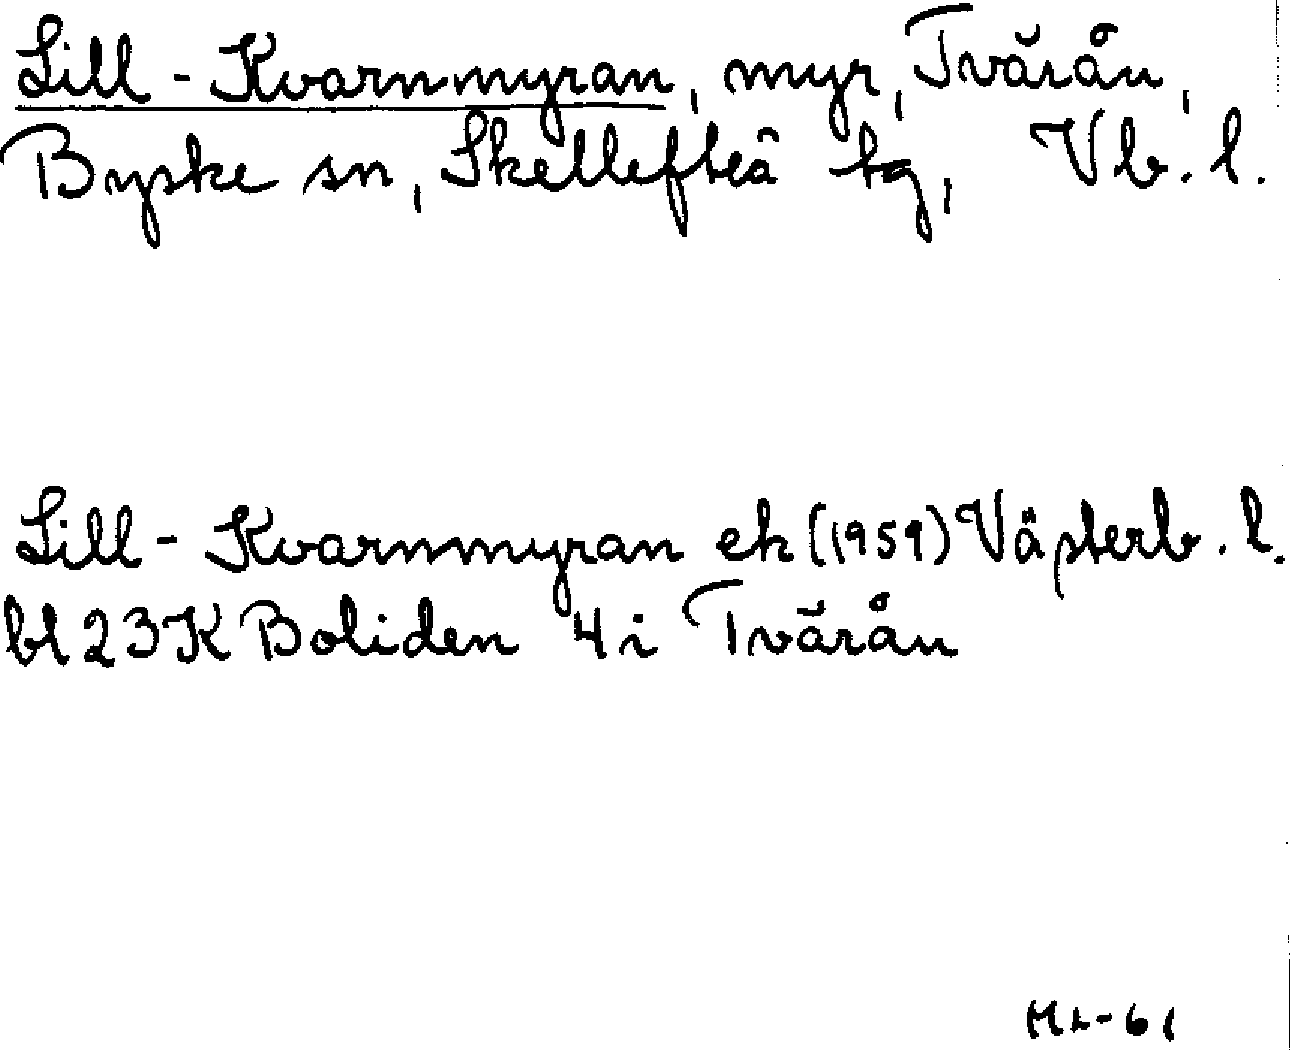 Lill-Kvarnmyran, myr, Tvärån,
Byske sn, Skellefteå tg, Vb. l.
Lill-Kvarnmyran ek (1959) Västerb. l.
bl 23K Boliden 4i Tvärån
ML-61